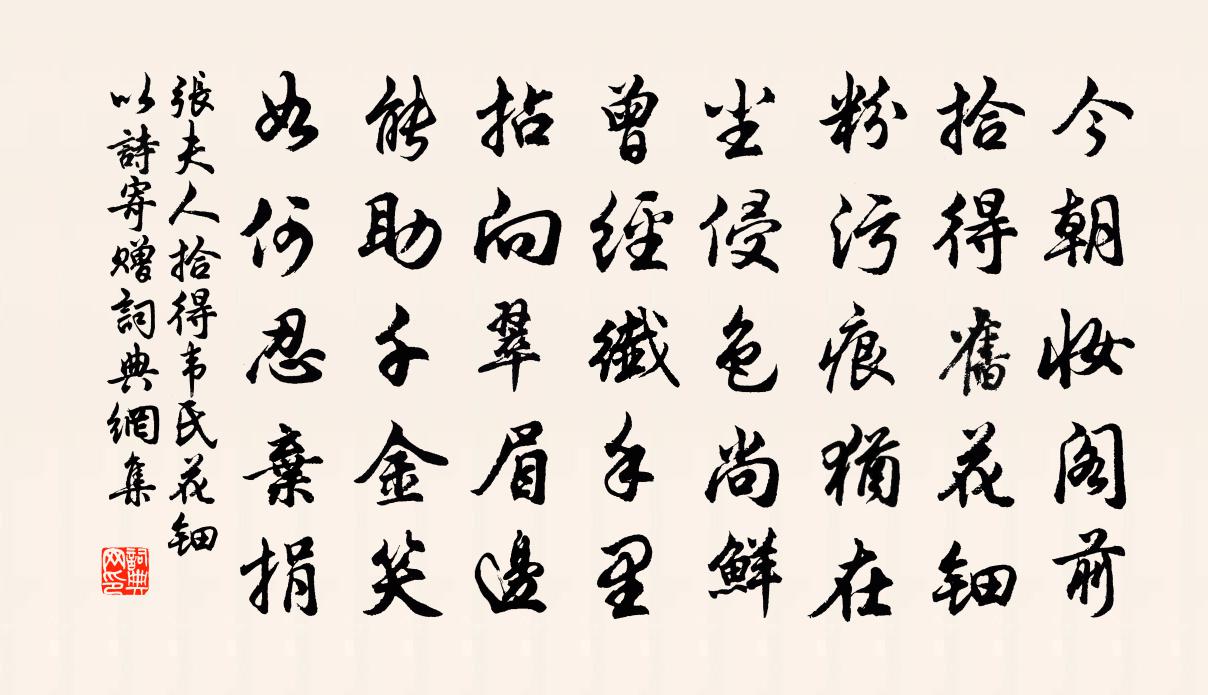 今朝妆阁前
拾得舊花鈿
粉污痕猶在
尘侵色尚鮮
曾經纖手里
拈向翠眉邊
能助千金笑
如何忍棄捐
張夫人拾得韦民花鈿
以詩寄赠詞典網集
詞典网印